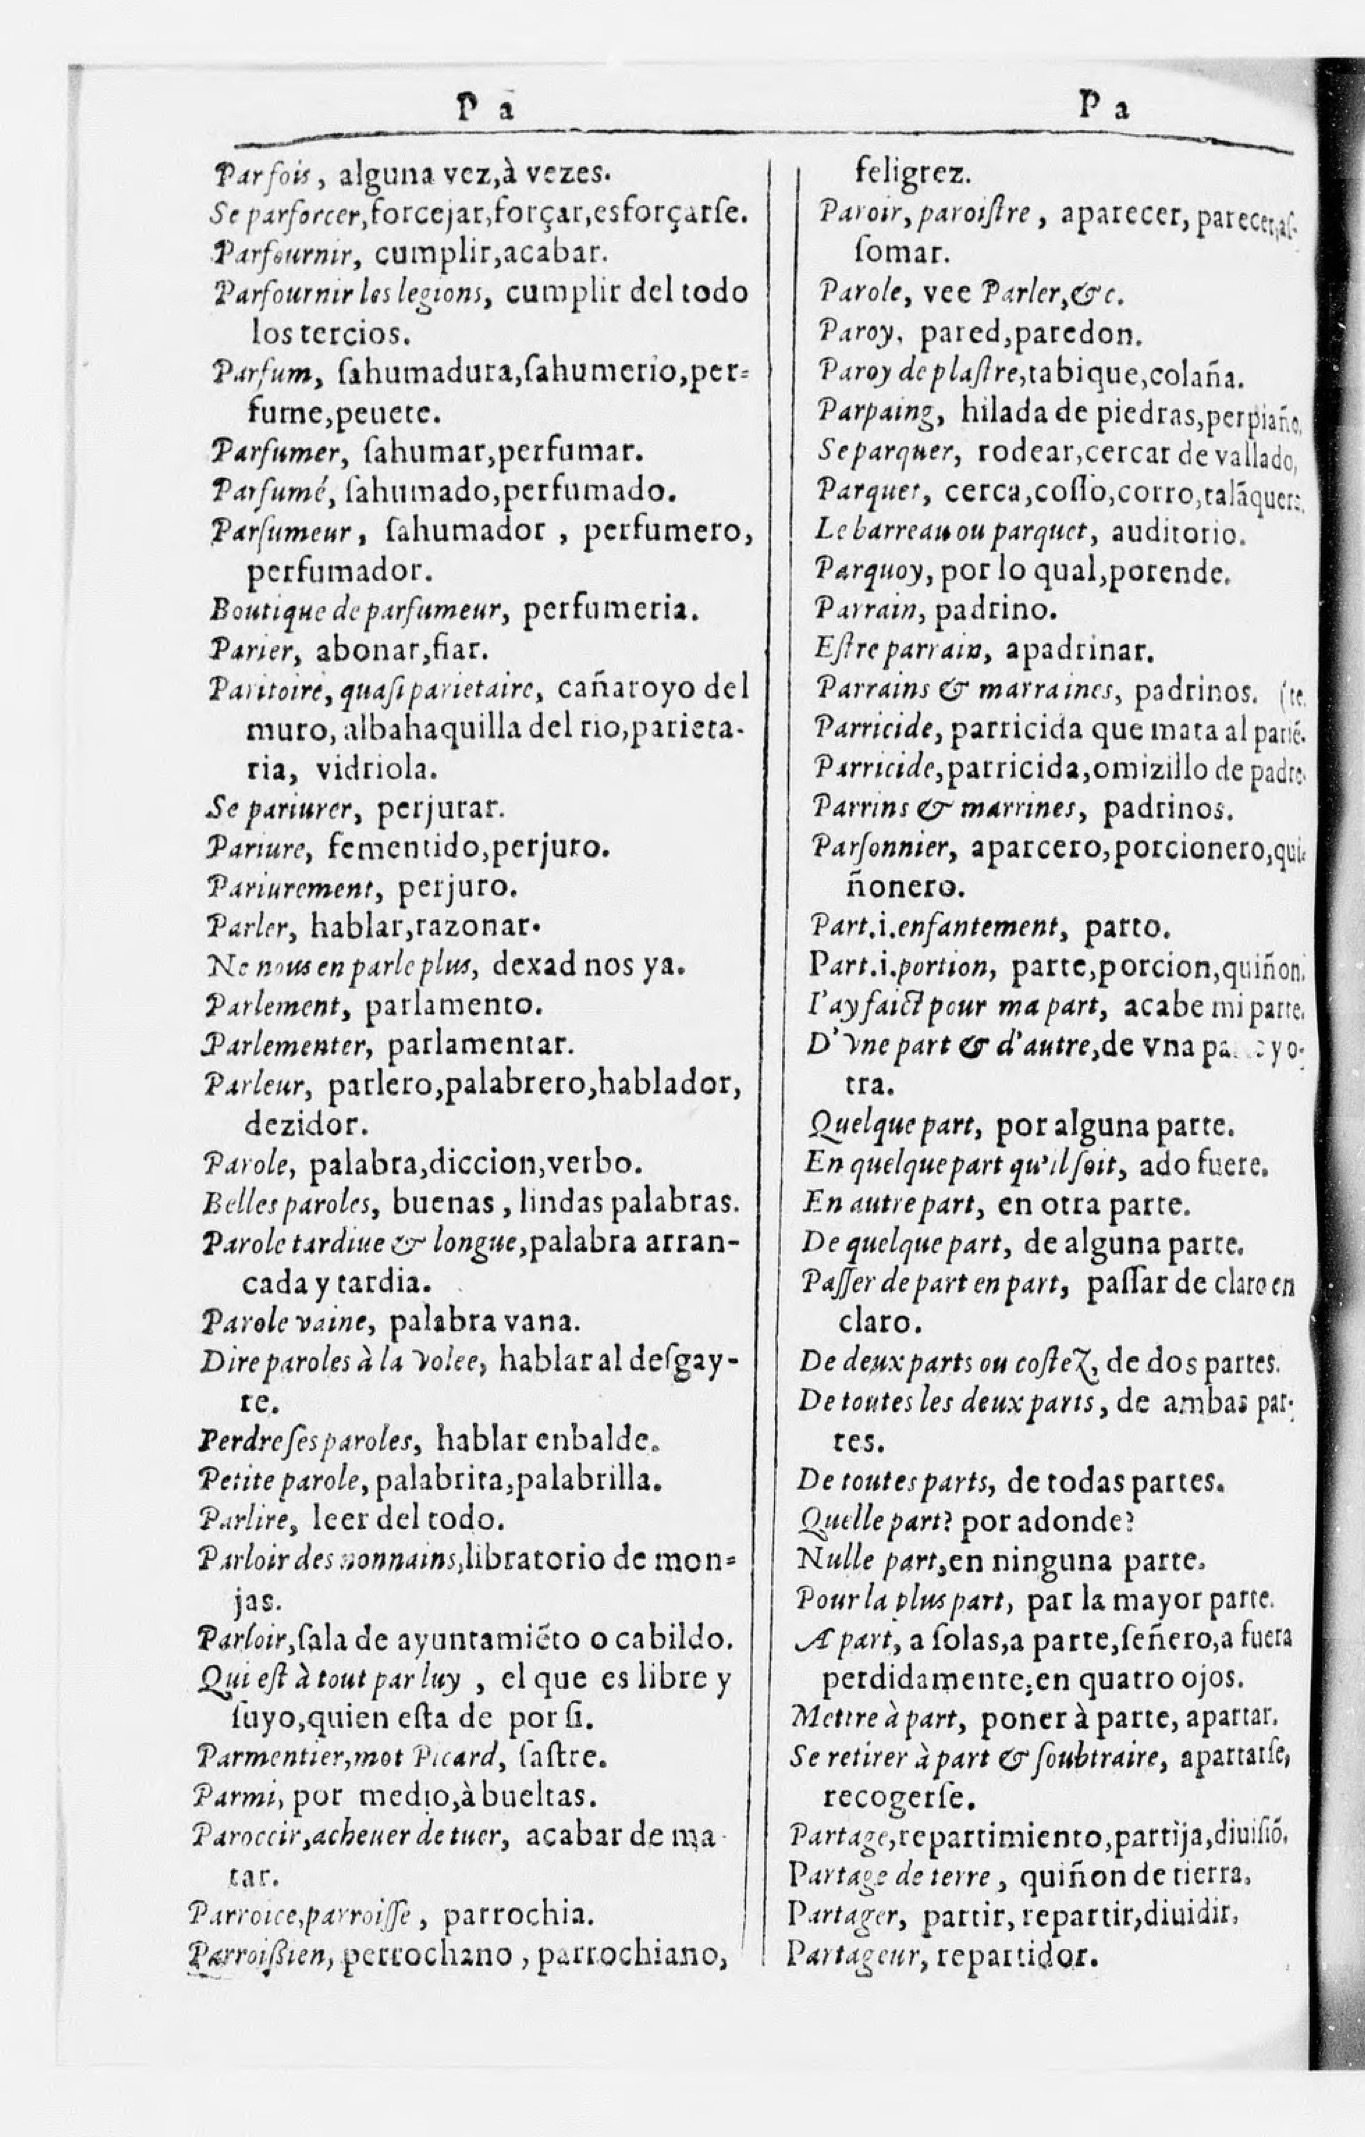 P a
Parfois, alguna vez,à vezes.
Se parforcer,forcejar,forçar,esforçarſe.
Parfournir, cumplir,acabar.
Parfournir les legions, cumplir del todo
los tercios.
Parfum, ſahumadura,ſahumerio,per-
fume,peuete.
Parfumer, ſahumar,perfumar.
Parfumé, ſahumado,perfumado.
Parfumeur, ſahumador , perfumero,
perfumador.
Boutique de parfumeur, perfumeria.
Parier, abonar,fiar.
Paritoire, quaſi parietaire, cañaroyo del
muro, albahaquilla del rio,parieta-
ria, vidriola.
Se pariurer, perjurar.
Pariure, fementido,perjuro.
Pariurement, perjuro.
Parler, hablar,razonar.
Ne nous en parle plus, dexad nos ya.
Parlement, parlamento.
Parlementer, parlamentar.
Parleur, parlero,palabrero,hablador,
dezidor.
Parole, palabra,diccion,verbo.
Belles paroles, buenas , lindas palabras.
Parole tardiue & longue,palabra arran-
cada y tardia.
Parole vaine, palabra vana.
Dire paroles à la volee, hablar al deſgay-
re.
Perdre ſes paroles, hablar enbalde.
Petite parole, palabrita,palabrilla.
Parlire, leer del todo.
Parloir des nonnains,libratorio de mon-
jas.
Parloir,ſala de ayuntamiẽto o cabildo.
Qui eſt à tout par luy , el que es libre y
ſuyo,quien eſta de por ſi.
Parmentier,mot Picard, ſaſtre.
Parmi, por medio,à bueltas.
Paroccir,acheuer de tuer, acabar de ma-
tar.
Parroice,parroiſſe , parrochia.
Parroißien, perrochano , parrochiano,
P a
feligrez.
Paroir, paroiſtre , aparecer, parecer,aſ-
ſomar.
Parole, vee Parler,&c.
Paroy, pared,paredon.
Paroy de plaſtre,tabique,colaña.
Parpaing, hilada de piedras,perpiaño.
Se parquer, rodear,cercar de vallado,
Parquet, cerca,coſſo,corro,talãquera.
Le barreau ou parquet, auditorio.
Parquoy, por lo qual,porende.
Parrain, padrino.
Eſtre parrain, apadrinar.
Parrains & marraines, padrinos. (te.
Parricide, parricida que mata al pariẽ-
Parricide,parricida,omizillo de padre.
Parrins & marrines, padrinos.
Parſonnier, aparcero,porcionero,qui-
ñonero.
Part.i.enfantement, parto.
Part.i.portion, parte,porcion,quiñon.
I'ay faict pour ma part, acabe mi parte.
D'vne part & d'autre,de vna y o-
tra.
Quelque part, por alguna parte.
En quelque part qu'il ſoit, ado fuere.
En autre part, en otra parte.
De quelque part, de alguna parte.
Paſſer de part en part, paſſar de claro en
claro.
De deux parts ou coſtez, de dos partes.
De toutes les deux parts, de ambas par-
tes.
De toutes parts, de todas partes.
Quelle part? por adonde?
Nulle part,en ninguna parte.
Pour la plus part, par la mayor parte.
A part, a ſolas,a parte,ſeñero,a fuera
perdidamente,en quatro ojos.
Mettre à part, poner à parte, apartar.
Se retirer à part & ſoubtraire, apartarſe,
recogerſe.
Partage,repartimiento,partija,diuiſiõ.
Partage de terre , quiñon de tierra.
Partager, partir, repartir,diuidir.
Partageur, repartidor.